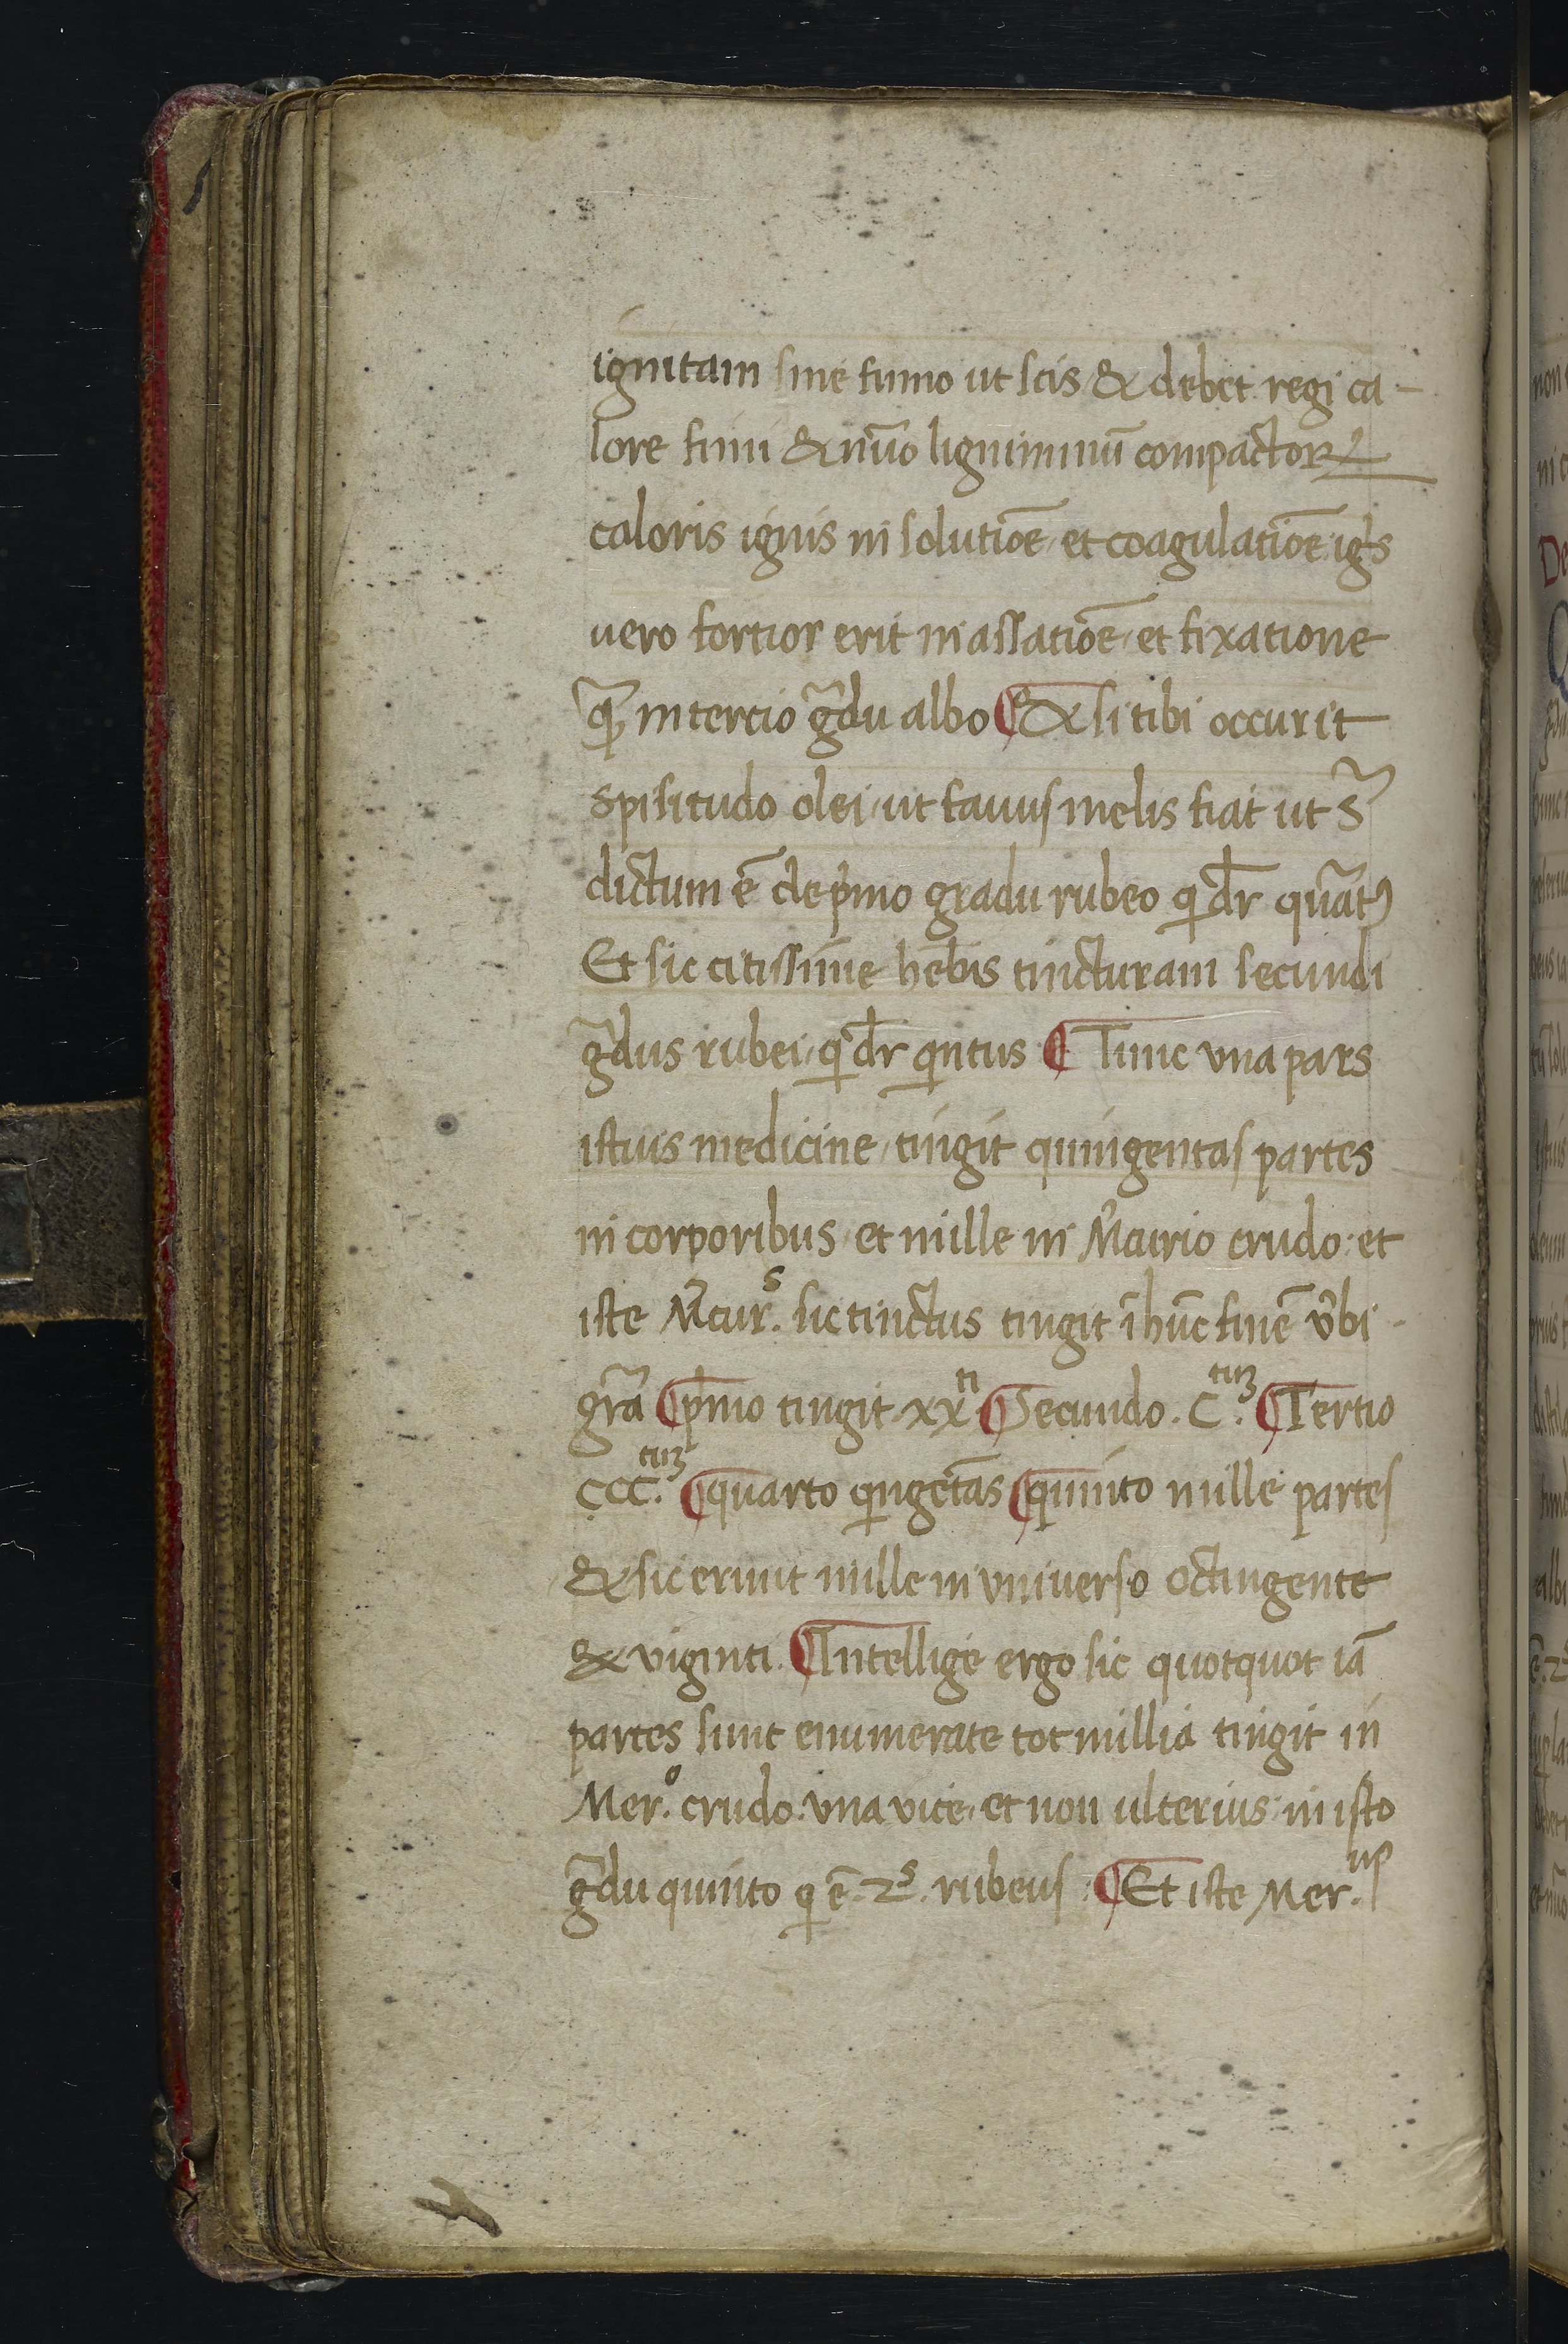 ignitam sine fumo ut scis & debet regi ca-
lore fimi & nūo ligniminuū compactoꝝ
caloris ignis in solutiōe et coagulatiōe ig̃s
vero fortior erit in assatiōe et fixatione
qꝫ̃ in tercio g̃du albo ¶ & si tibi occurit
spisitudo olei ut favus melis fiat ut s̃
dictum ē de p̃mo gradu rubeo qui d̄r quāt9
Et sic citissime hēbis tincturam secundi
g̃dus rubei qui d̄r quintus ¶ Tunc vna pars
istius medicine tingit quingentas partes
in corporibus et mille in M̃curio crudo: et
iste M̃cur.s sic tinctus tingit ī hūc finē v̓bi
grā ¶ p̃mo tingit xxti ¶ Secundo . C.tuꝫ ¶ Tertio
CCC.tuꝫ ¶ quarto quingētas ¶ quinto mille partes
& sic erunt mille in vniverso octingente
& viginti. ¶ Intellige ergo sic quotquot iā
partes sunt enumerate tot millia tingit in
Mer.o crudo. vna vice et non ulterius in isto
g̃du quinto qui ē. 2s. rubeus: ¶ Et iste Mer.us